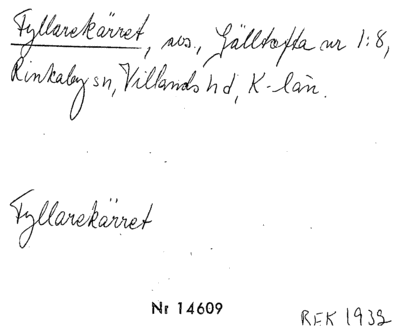 Fyllarekärret, ävs., Gälltofta nr 1:8,
Rinkaby sn, Villands hd, K-län.
Fyllarekärret
Nr 14609
RFK 1932